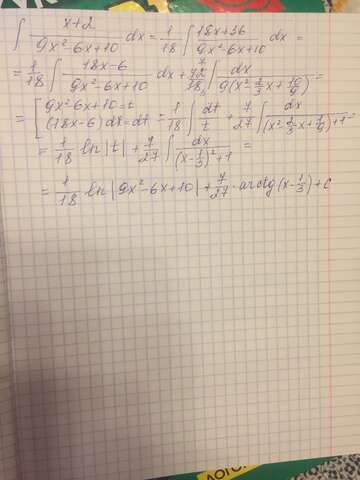 ∫ (x+2)/(9x²-6x+10) dx = 1/18 ∫ (18x+36)/(9x²-6x+10) dx =
= 1/18 ∫ (18x-6)/(9x²-6x+10) dx + 42/18 ∫ dx/(9(x²-2/3x+10/9)) =
= [9x²-6x+10=t (18x-6)dx=dt] = 1/18 ∫ dt/t + 7/27 ∫ dx/((x²-2/3x+1/9)+1) =
= 1/18 ln|t| + 7/27 ∫ dx/((x-1/3)²+1) =
= 1/18 ln|9x²-6x+10| + 7/27 · arctg(x-1/3) + C